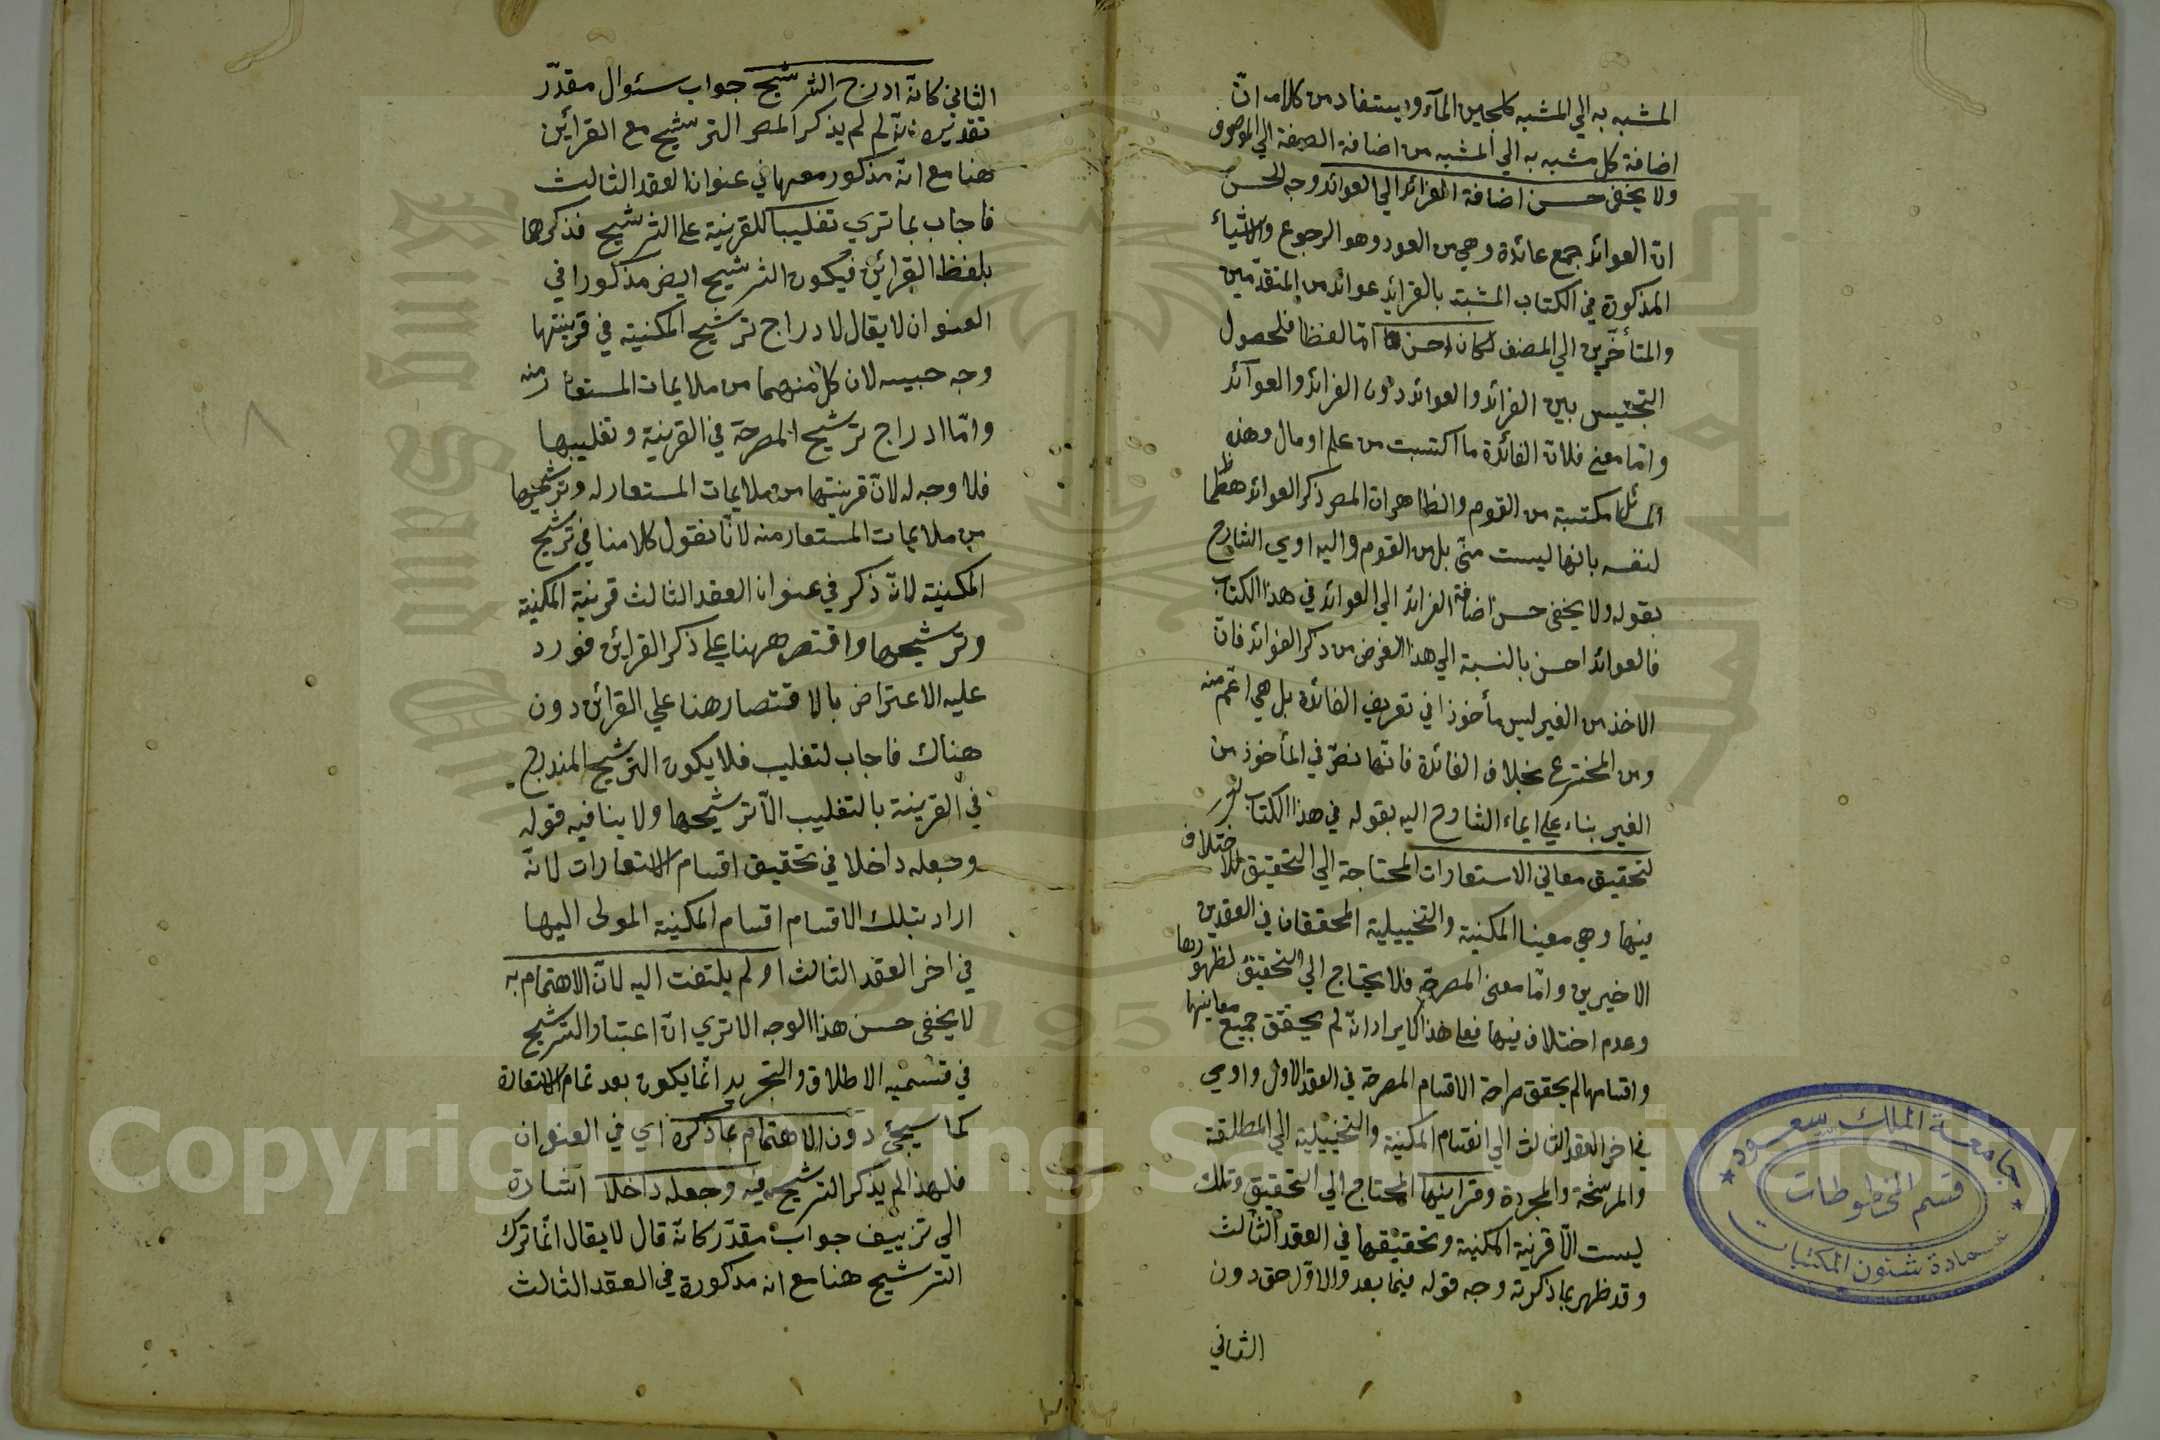 المشبه به الي المشبه كلجين المآء ويستفاد من كلامه انّ
اضافة كل مشبه به الي المشبه من اضافة الصفة الي الموصوف
ولا يخفى حسن اضافة الفرائد الي العوائد وجه الحسن
ان العوائد جمع عائدة وهي من العود وهو الرجوع والاشياء
المذكورة في الكتاب المشبه بالفرائد عوائد من المتقدّمين
والمتأخّرين الي المصنف لكان احسن امّا لفظا فلحصول
التجنيس بين الفرائد والعوائد دون الفرائد والعوآئد
وامّا معنى فلانّ الفائدة ما اكتسبت من علم او مال وهذه
المسائل مكتسبة من القوم والظاهر ان المصر ذكر العوائد هضما
لنفسه بانها ليست منّى بل من القوم واليه اوى الشارح
بقوله ولا يخفى حسن اضافة الفرائد الي العوائد في هذا الكتاب
فالعوائد احسن بالنسبة الي هذا الغرض من ذكر الفوائد فانّ
الاخذ من الغير ليس مأخوذا في تعريف الفائدة بل هي اعمّ منه
ومن المخترع بخلاف الفائدة فانّها نصّ في المأخوذ من
الغير بناء علي ايماء الشارح اليه بقوله في هذا الكتاب
لتحقيق معاني الاستعارات المحتاجة الي التحقيق للاختلاف
فيها وهي معينا المكنية والتخييلية المحققان في العقدين
الاخيرين وامّا معنى المصرحة فلا يحتاج الي التحقيق لظهورها
وعدم اختلاف فيها فعلي هذا لا يراد انّه لم يحقّق جميع معاينها
واقسامها لم يحقق صراحة الاقسام المصرحة في العقد الاول واومي
في اخر العقد الثالث الي انقسام المكنية والتخييلية الي المطلقة
والمرشّحة والمجردة وقراينها المحتاج الي التحقيق وتلك
ليست الّا قرنية المكنية وتحقيقها في العقد الثالث
وقد ظهر بما ذكرته وجه قوله فيما بعد والاول حق دون
الثاني
الثاني كانّه ادرج الترشيح جواب سئوال مقدّر
تقديره انّه لم لم يذكر المصر الترشيح مع القرائن
هنا مع انّه مذكور معها في عنوان العقد الثالث
فاجاب بما تري تغليبا للقرنية علي الترشيح فذكرها
بلفظ القرائن فيكون الترشيح ايضر مذكورا في
العنوان لا يقال لادراج ترشيح المكنية في قرينتها
وجه حبيسه لان كلّ منهما من ملايمات المستعار منه
وامّا ادراج ترشيح المصرحة في القرينة وتغليبها
فلا وجه له لانّ قرينتها من ملايمات المستعار له وترشيحها
من ملايمات المستعار منه لانّا نقول كلامنا في ترشيح
المكنية لانّه ذكر في عنوان العقد الثالث قرنية المكنية
وترشيحها واقتصر ههنا علي ذكر القراين فورد
عليه الاعتراض بالاقتصار هنا علي القرائن دون
هناك فاجاب لتغليب فلا يكون الترشيح المندرج
في القرينة بالتغليب الّا ترشيحها ولا ينافيه قوله
وجعله داخلا في تحقيق اقسام الاستعارات لانّه
اراد بتلك الاقسام اقسام المكنية المولى اليها
في اخر العقد الثالث او لم يلتفت اليه لانّ الاهتمام به
لا يخفى حسن هذا الوجه الا تري انّ اعتبار الترشيح
في قسميه الاطلاق والتجريد انّما يكون بعد تمام الاستعارة
كما سيجئ دون الاهتمام بما ذكره اي في العنوان
فلهذا لم يذكر الترشيح فيه وجعله داخلا اشارة
الي تزييف جواب مقدّر كانّه قال لا يقال انّما ترك
الترشيح هنا مع انه مذكورة في العقد الثالث
جامعة الملك سعود
قسم المخطوطات
عمادة شئون المكتبات
Copyright © King Saud University